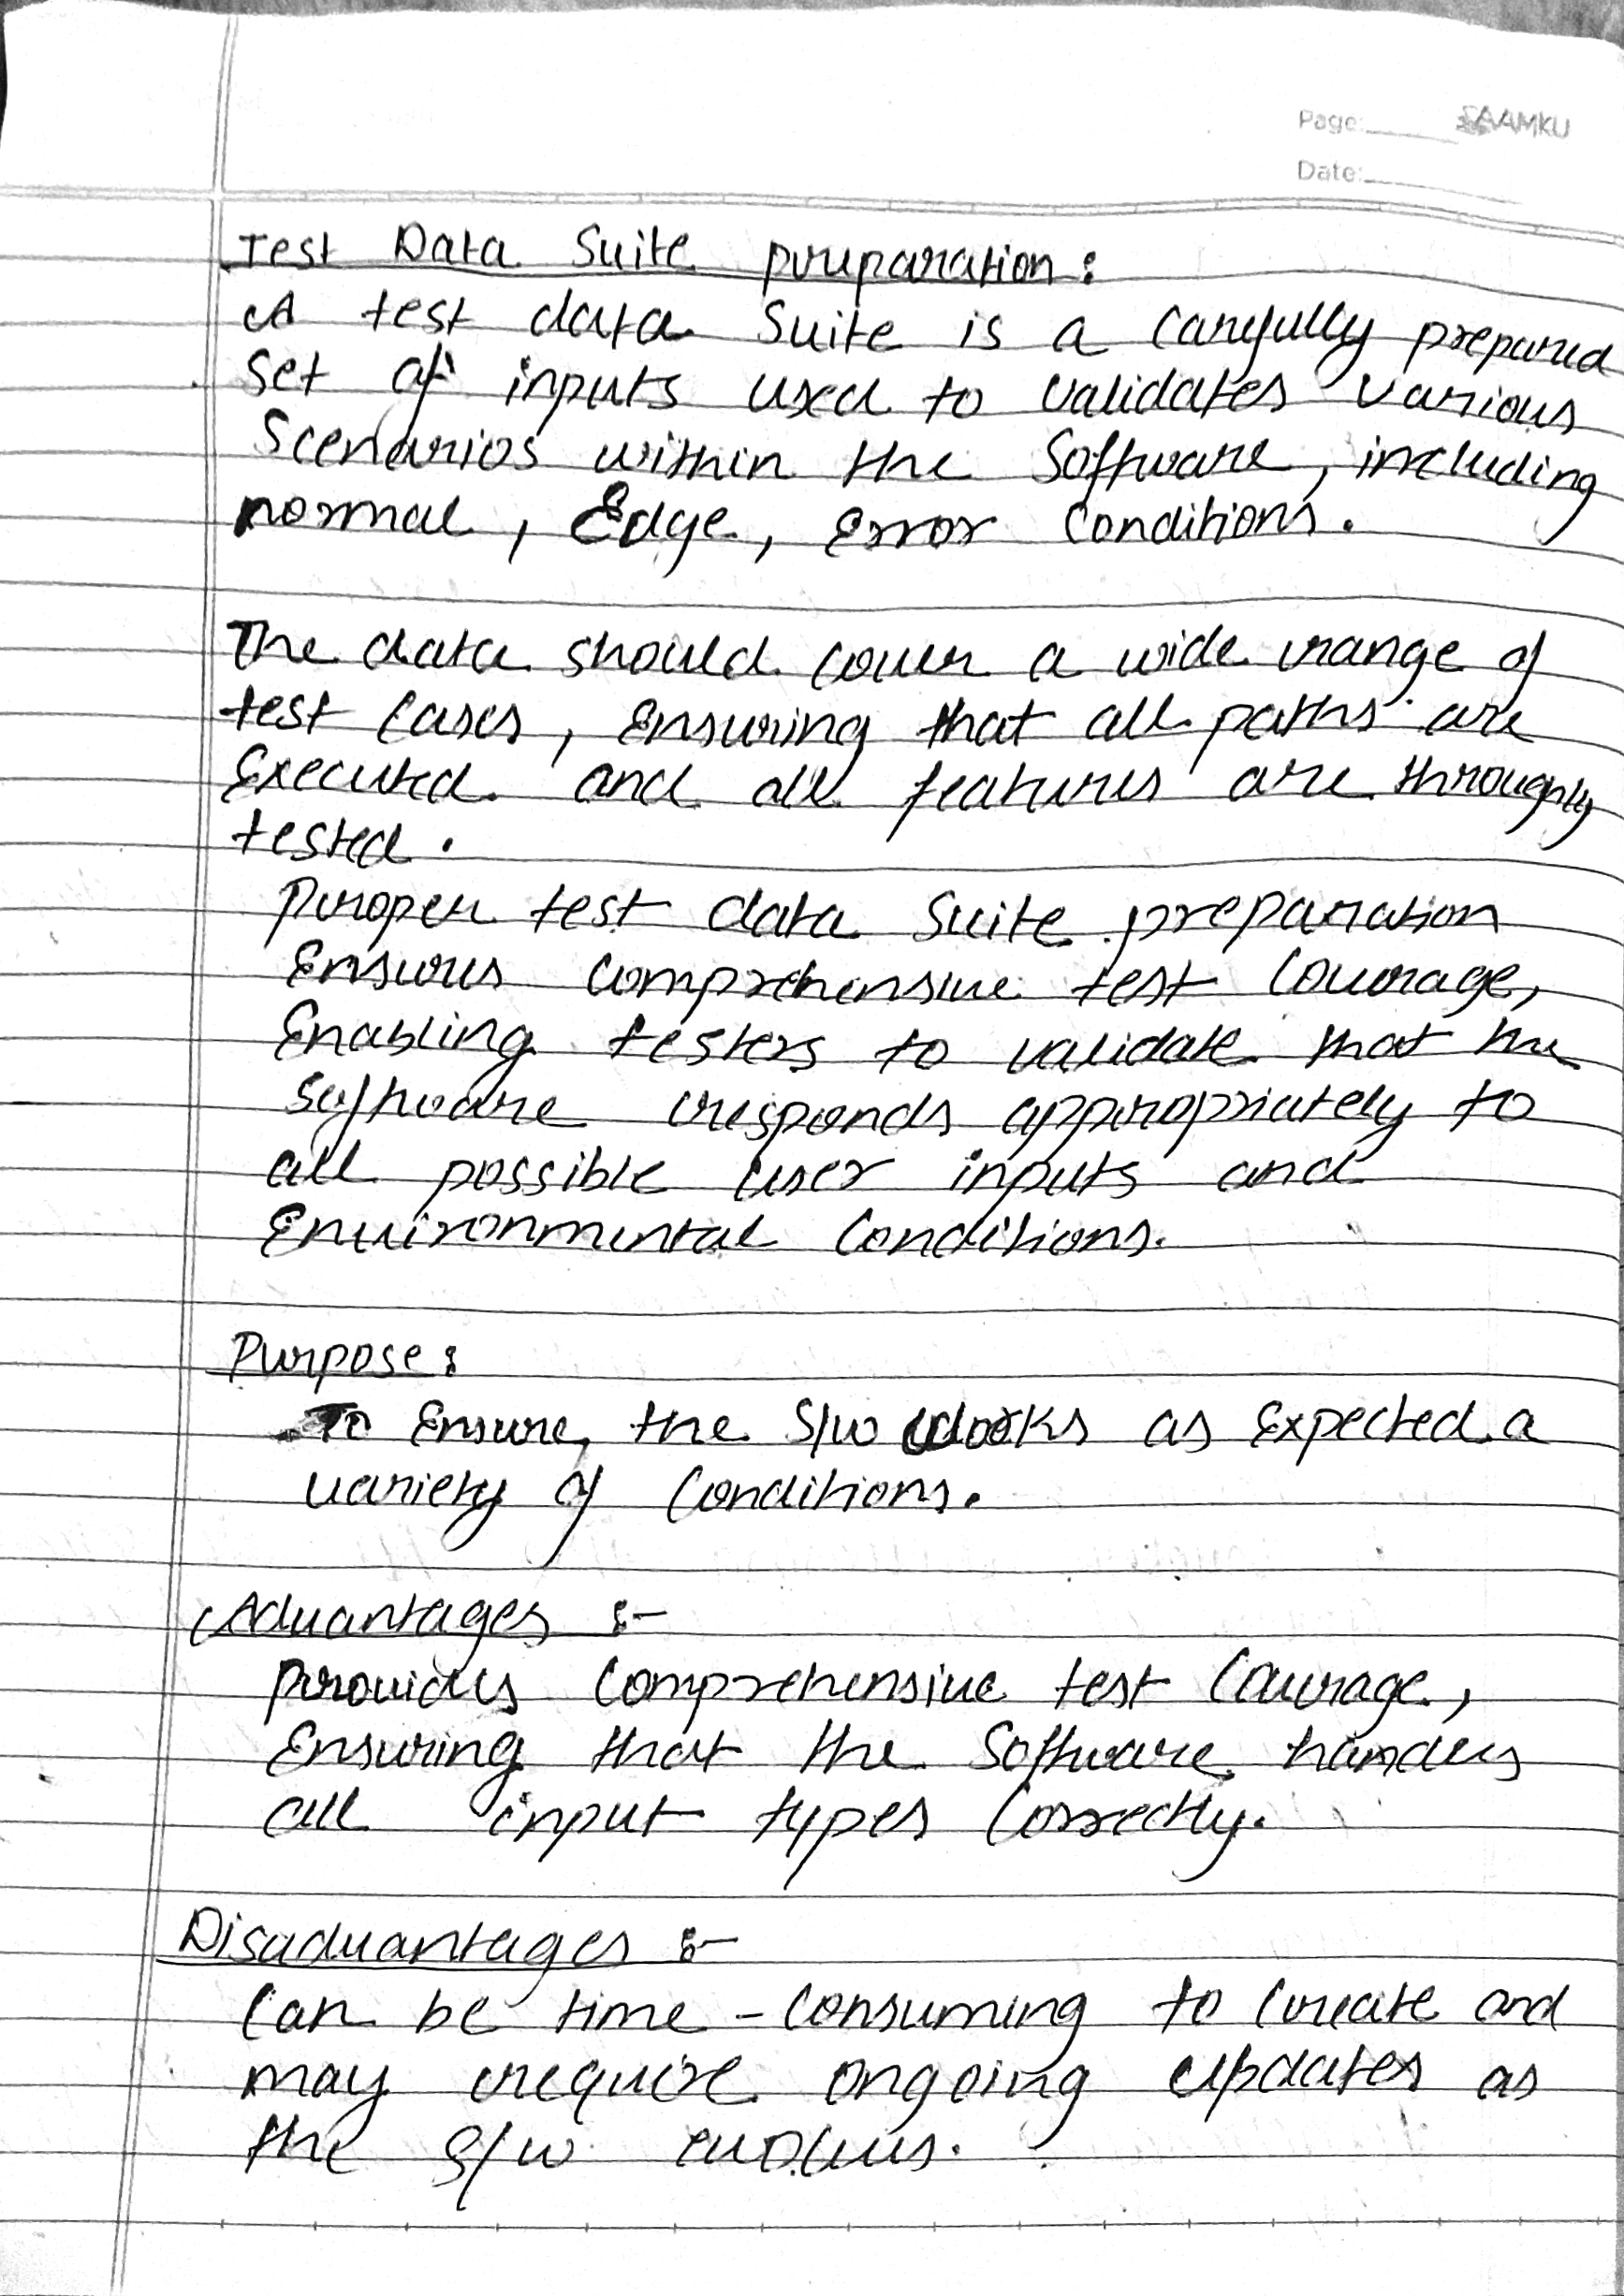 Page: SAAMKU
Date:
Test Data Suite preparation :
A test data Suite is a carefully prepared
set of inputs used to validates various
Scenarios within the Software, including
normal, Edge, Error Conditions.
The data should cover a wide range of
test cases, Ensuring that all paths are
Executed and all features are throughly
tested.
Proper test data Suite preparation
Ensures comprehensive test coverage,
Enabling testers to validate that the
software responds appropriately to
all possible user inputs and
Environmental Conditions.
Purpose :
To Ensure, the S/w works as Expected a
variety of Conditions.
Advantages :-
Provides Comprehensive test Coverage,
Ensuring that the Software handles
all input types Correctly.
Disadvantages :-
Can be time - Consuming to Create and
may require ongoing updates as
the S/w evolves.